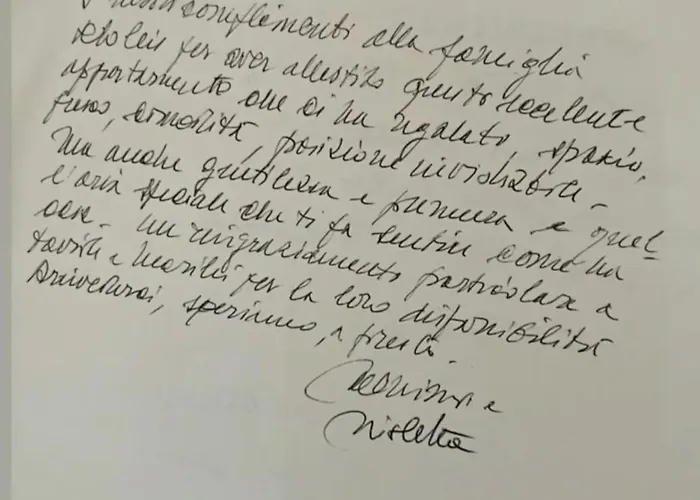 complimenti alla famiglia
per aver allestito questo eccellente
appartamento che ci ha regalato, spazio,
comodità, posizione invidiabile -
Ma anche gentilezza e premura e quel-
l'aria speciale che ti fa sentire come ha
casa - Un ringraziamento particolare a
e per la loro disponibilità
Arrivederci, speriamo, a presto
e
Nicletta